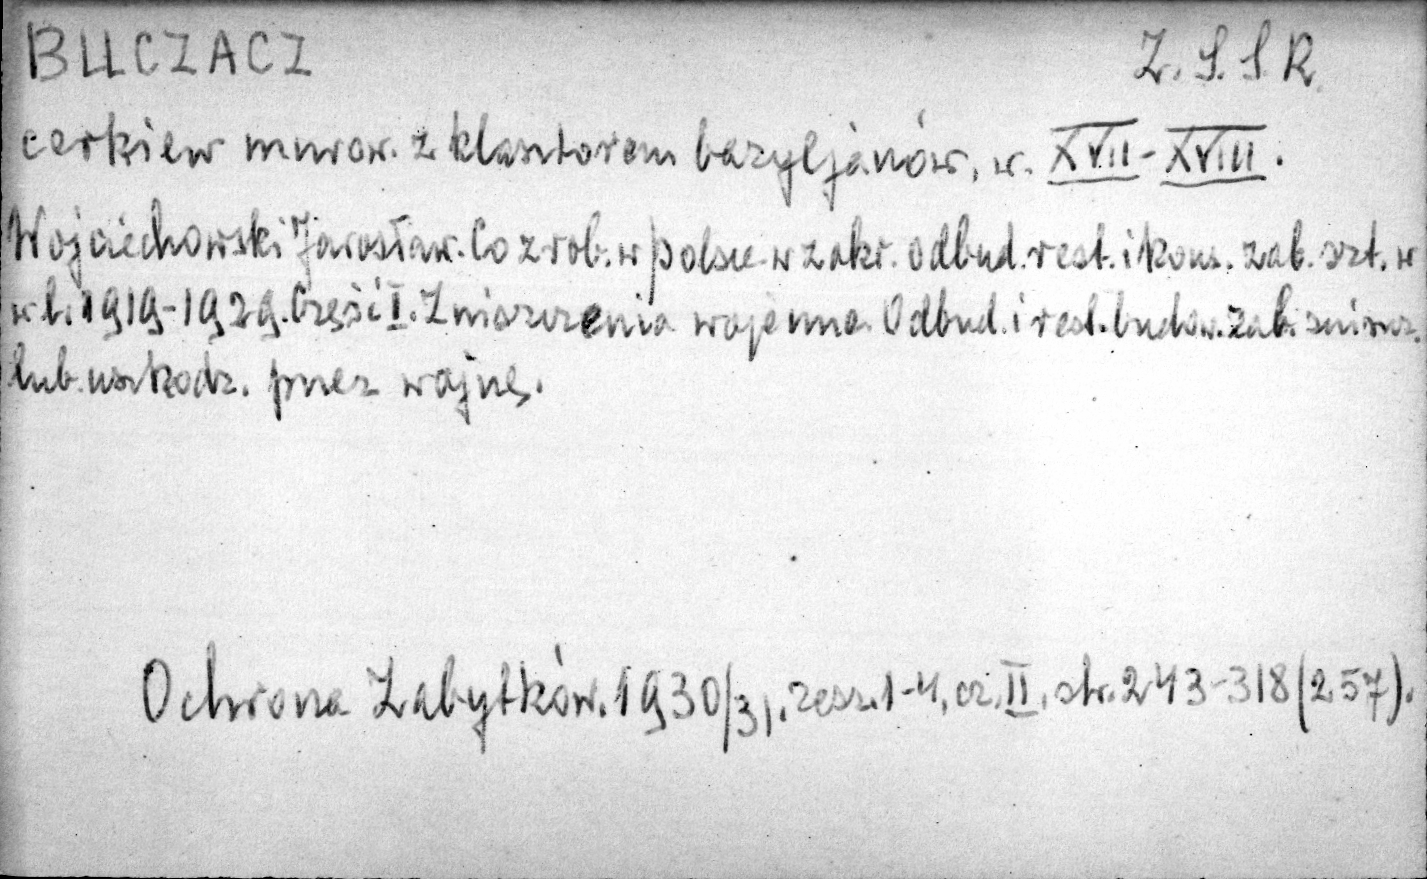 BUCZACZ Z.S.S.R.
cerkiew murow. z klasztorem bazyljanów, w. XVII-XVIII.
Wojciechowski Jarosław. Co zrob. w Polsce w zakr. odbud. rest. i kons. zab. szt. w
w l. 1919-1929. Część I. Zniszczenia wojenne. Odbud. i rest. budow. zab. zniszcz.
lub uszkodz. przez wojnę.
Ochrona Zabytków. 1930/31. zesz. 1-4, cz. II, str. 243-318 (257).